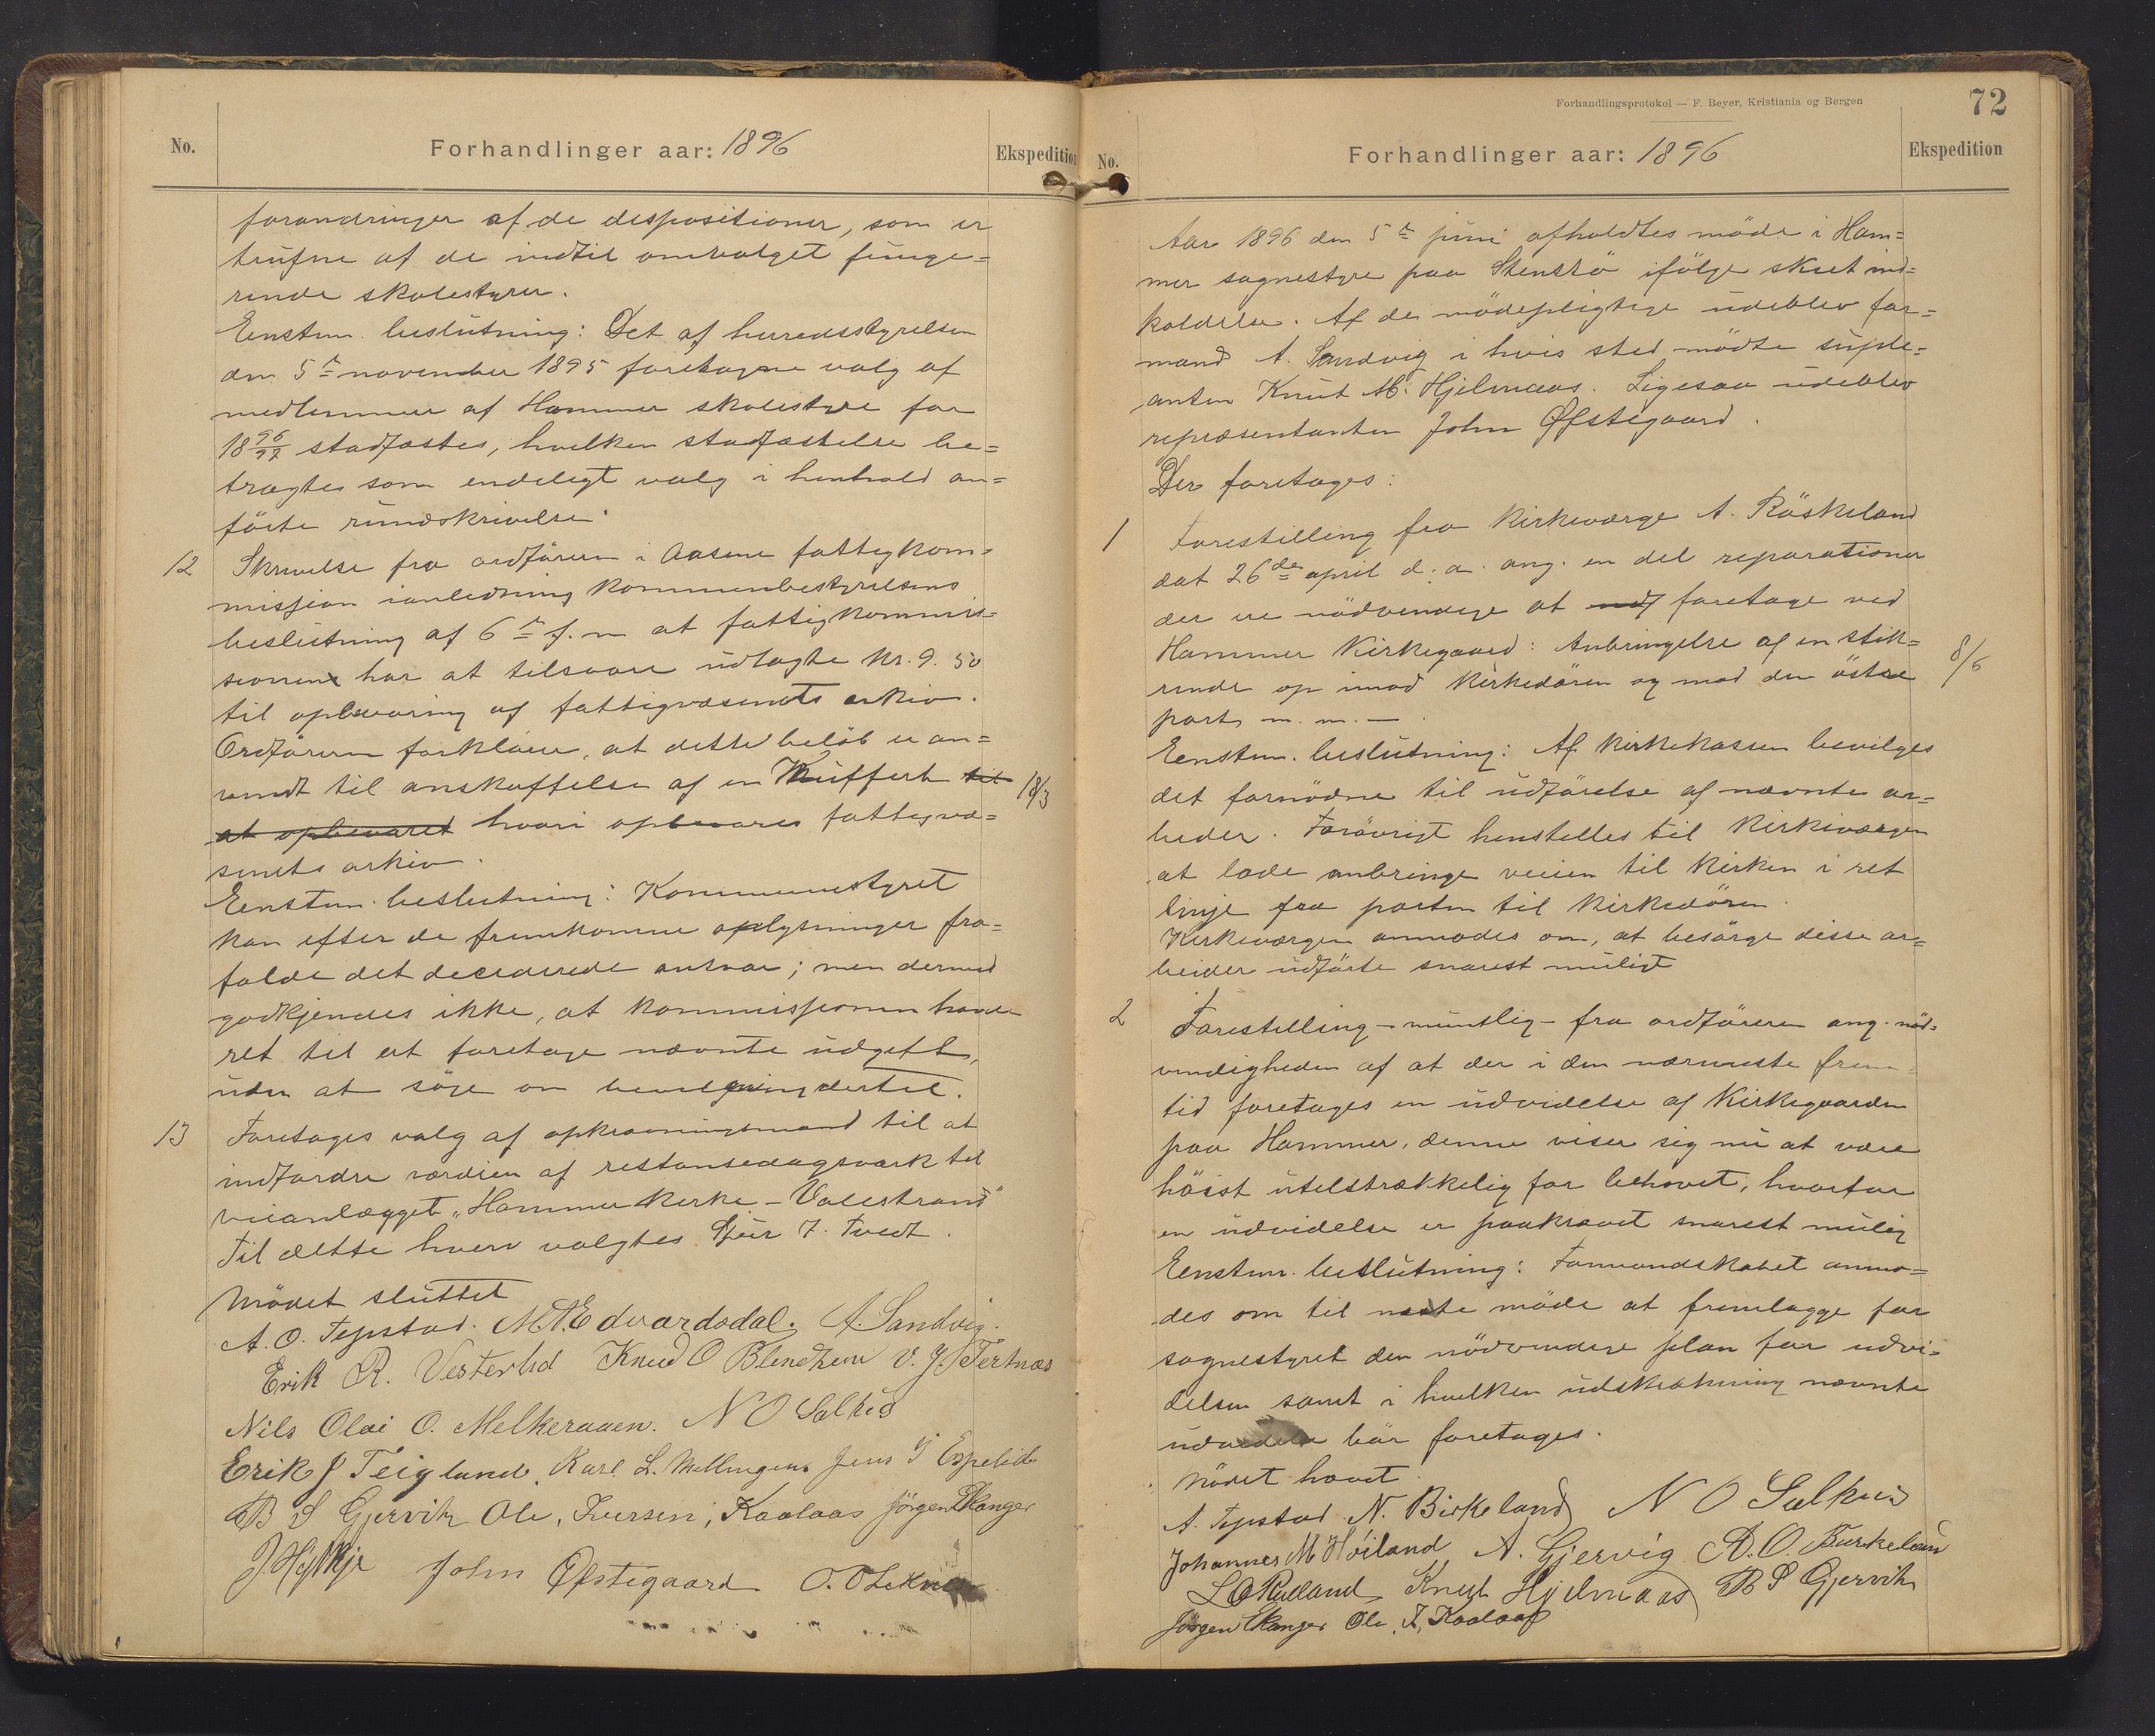 No.
Forhandlinger aar: 1896
Ekspedition
forandringer af de dispositioner, som er
trufne af de indtil omvalget funge=
rende skolestyrer.
Eenstm. beslutning: Det af herredsstyrelsen
den 5te november 1895 foretagne valg af
medlemmer af Hammer skolestyre for
1896/97 stadfæstes, hvilken stadfæstelse be=
tragtes som endeligt valg i henhold an=
førte rundskrivelse.
12 Skrivelse fra ordføreren i Aasene fattigkom=
mission i anledning kommunebestyrelsens
beslutning af 6te f. m at fattigkommis=
sionen har at tilsvare udlagte kr. 9.50
til opbevaring af fattigvæsenets arkiv.
Ordføreren forklarer, at dette beløb er an=
vendt til anskaffelse af en Kuffert til
18/3
at opbevaret hvori opbevares fattigvæ=
senets arkiv.
Eenstm. beslutning: Kommunestyret
kan efter de fremkomne oplysninger fra=
falde det deciderede ansvar; men dermed
godkjendes ikke, at kommissionen havde
ret til at foretage nævnte udgift,
uden at søge om bevilgning dertil.
13 Foretages valg af opkrævningsmand til at
indfordre værdien af restansedagsværk til
veianlægget "Hammer kirke - Valestrand"
Til dette hverv valgtes Sjur J. Tvedt.
Mødet sluttet
A. O. Tepstad. M. A. Edvardsdal. A. Sandvig.
Erik R. Vesterlid Knud O Blindheim V. J. Tertnæs
Nils Olai O. Melkeraaen. N O Salhus
Erik J Teigland. Karl L. Mellingen. Jens J Espelid
B S Gjervik Ole, Iversen, Kaalaas Jörgen Ekanger
John Øfstegaard
Forhandlingsprotokol — F. Beyer, Kristiania og Bergen
72
No.
Forhandlinger aar: 1896
Ekspedition
Aar 1896 den 5te juni afholdtes møde i Ham=
mer sognestyre paa Stenstø ifølge skeet ind=
kaldelse. Af de mødepligtige udeblev for=
mand A. Sandvig i hvis sted mødte suple=
anten Knut M. Hjelmaas. Ligesaa udeblev
repræsentanten John Øfstegaard.
Der foretages:
1 Forestilling fra kirkeværge A. Röskeland
dat 26de april d. a. ang. en del reparationer
der ere nødvendige at foretage ved
Hammer kirkegaard: Anbringelse af en stik=
8/6
rende op imod kirkedøren og mod den østre
port m. m. —
Eenstm. beslutning: Af kirkekassen bevilges
det fornødne til udførelse af nævnte ar=
beider. Forøvrigt henstilles til kirkeværgen
at lade anbringe veien til kirken i ret
linje fra porten til kirkedøren.
Kirkeværgen anmodes om, at besørge disse ar=
beider udførte snarest muligt
2 Forestilling - muntlig - fra ordføreren ang. nød=
vendigheden af at der i den nærmeste frem=
tid foretages en udvidelse af kirkegaarden
paa Hammer, denne viser sig nu at være
høist utilstrækkelig for behovet, hvorfor
en udvidelse er paakrævet snarest mulig
Eenstm. beslutning: Formandskabet anmo=
des om til næste møde at fremlægge for
sognestyret den nødvendige plan for udvi=
delsen samt i hvilken udstrækning nævnte
udvidelse bør foretages.
Mødet hævet.
A. Tepstad N. Birkeland N O Salhus
Johannes M Höiland A. Gjervig A. O. Burkeland
L O Rülland Knut Hjelmaas B S Gjervik
Jörgen Ekanger Ole, I, Kaalaas